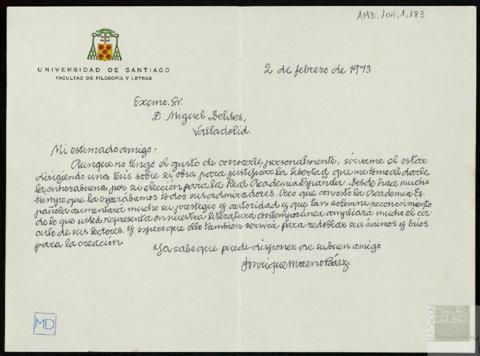 AMD, 104, 1, 183
UNIVERSIDAD DE SANTIAGO
FACULTAD DE FILOSOFIA Y LETRAS
2 de febrero de 1973
Excmo. Sr.
D. Miguel Delibes,
Valladolid.
Mi estimado amigo:
Aunque no tengo el gusto de conocerle personalmente, sírvame el estar
dirigiendo una tesis sobre su obra para justificar la libertad que me tomo al darle
la enhorabuena por su elección para la Real Academia Española. Desde hace mucho
tiempo que la esperábamos todos sus admiradores. Creo que con esto la Academia Es-
pañola aumentará mucho su prestigio y autoridad y que tan solemne reconocimiento
de lo que usted representa en nuestra literatura contemporánea ampliará mucho el cír-
culo de sus lectores. Y espero que ello también servirá para redoblar sus ánimos y bríos
para la creación.
Ya sabe que puede disponer de su buen amigo
Enrique Moreno Báez
MD
FUNDACIÓN
MIGUEL
DELIBES